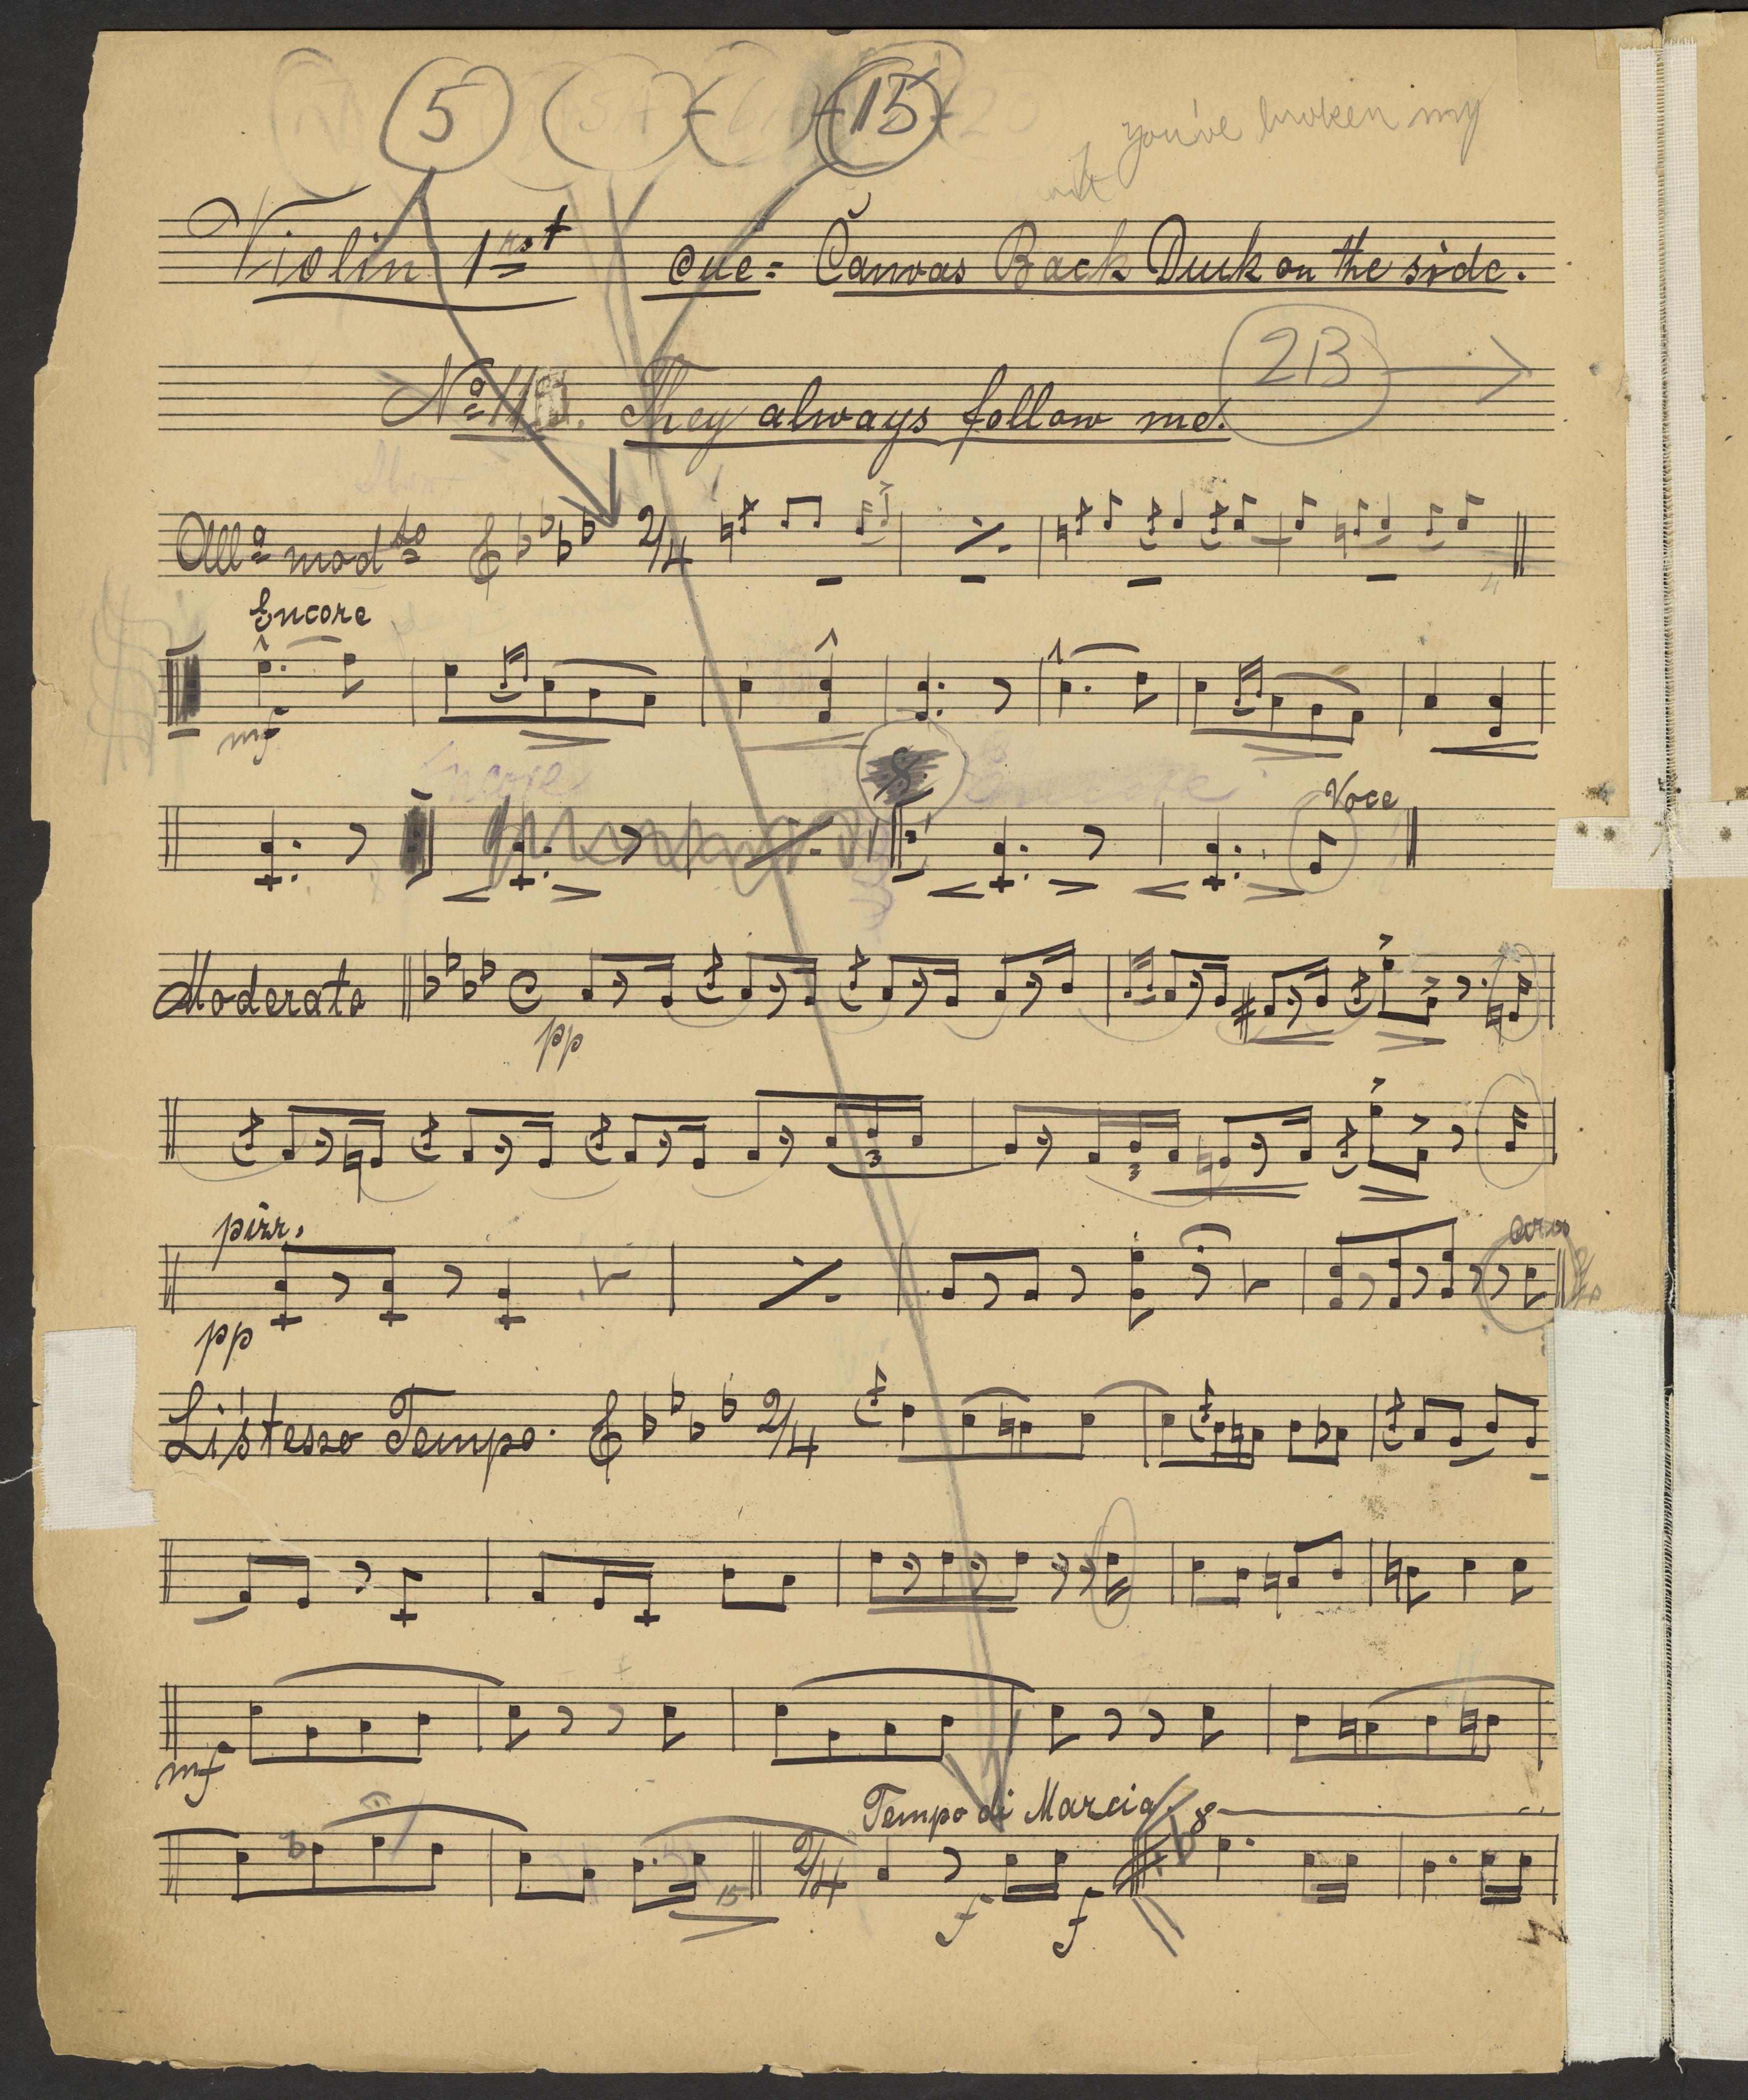 5 15
you've broken my
Violin 1rst cue = Canvas Back Duck on the side.
2B
No 11 . They always follow me.
Allo modto 2/4
Encore
mf
Encore 8
Voce
Moderato C
pp
3 3
pizz. arco
pp
Listesso Tempo. 2/4
mf
Tempo di Marcia. 8
15 2/4
f f